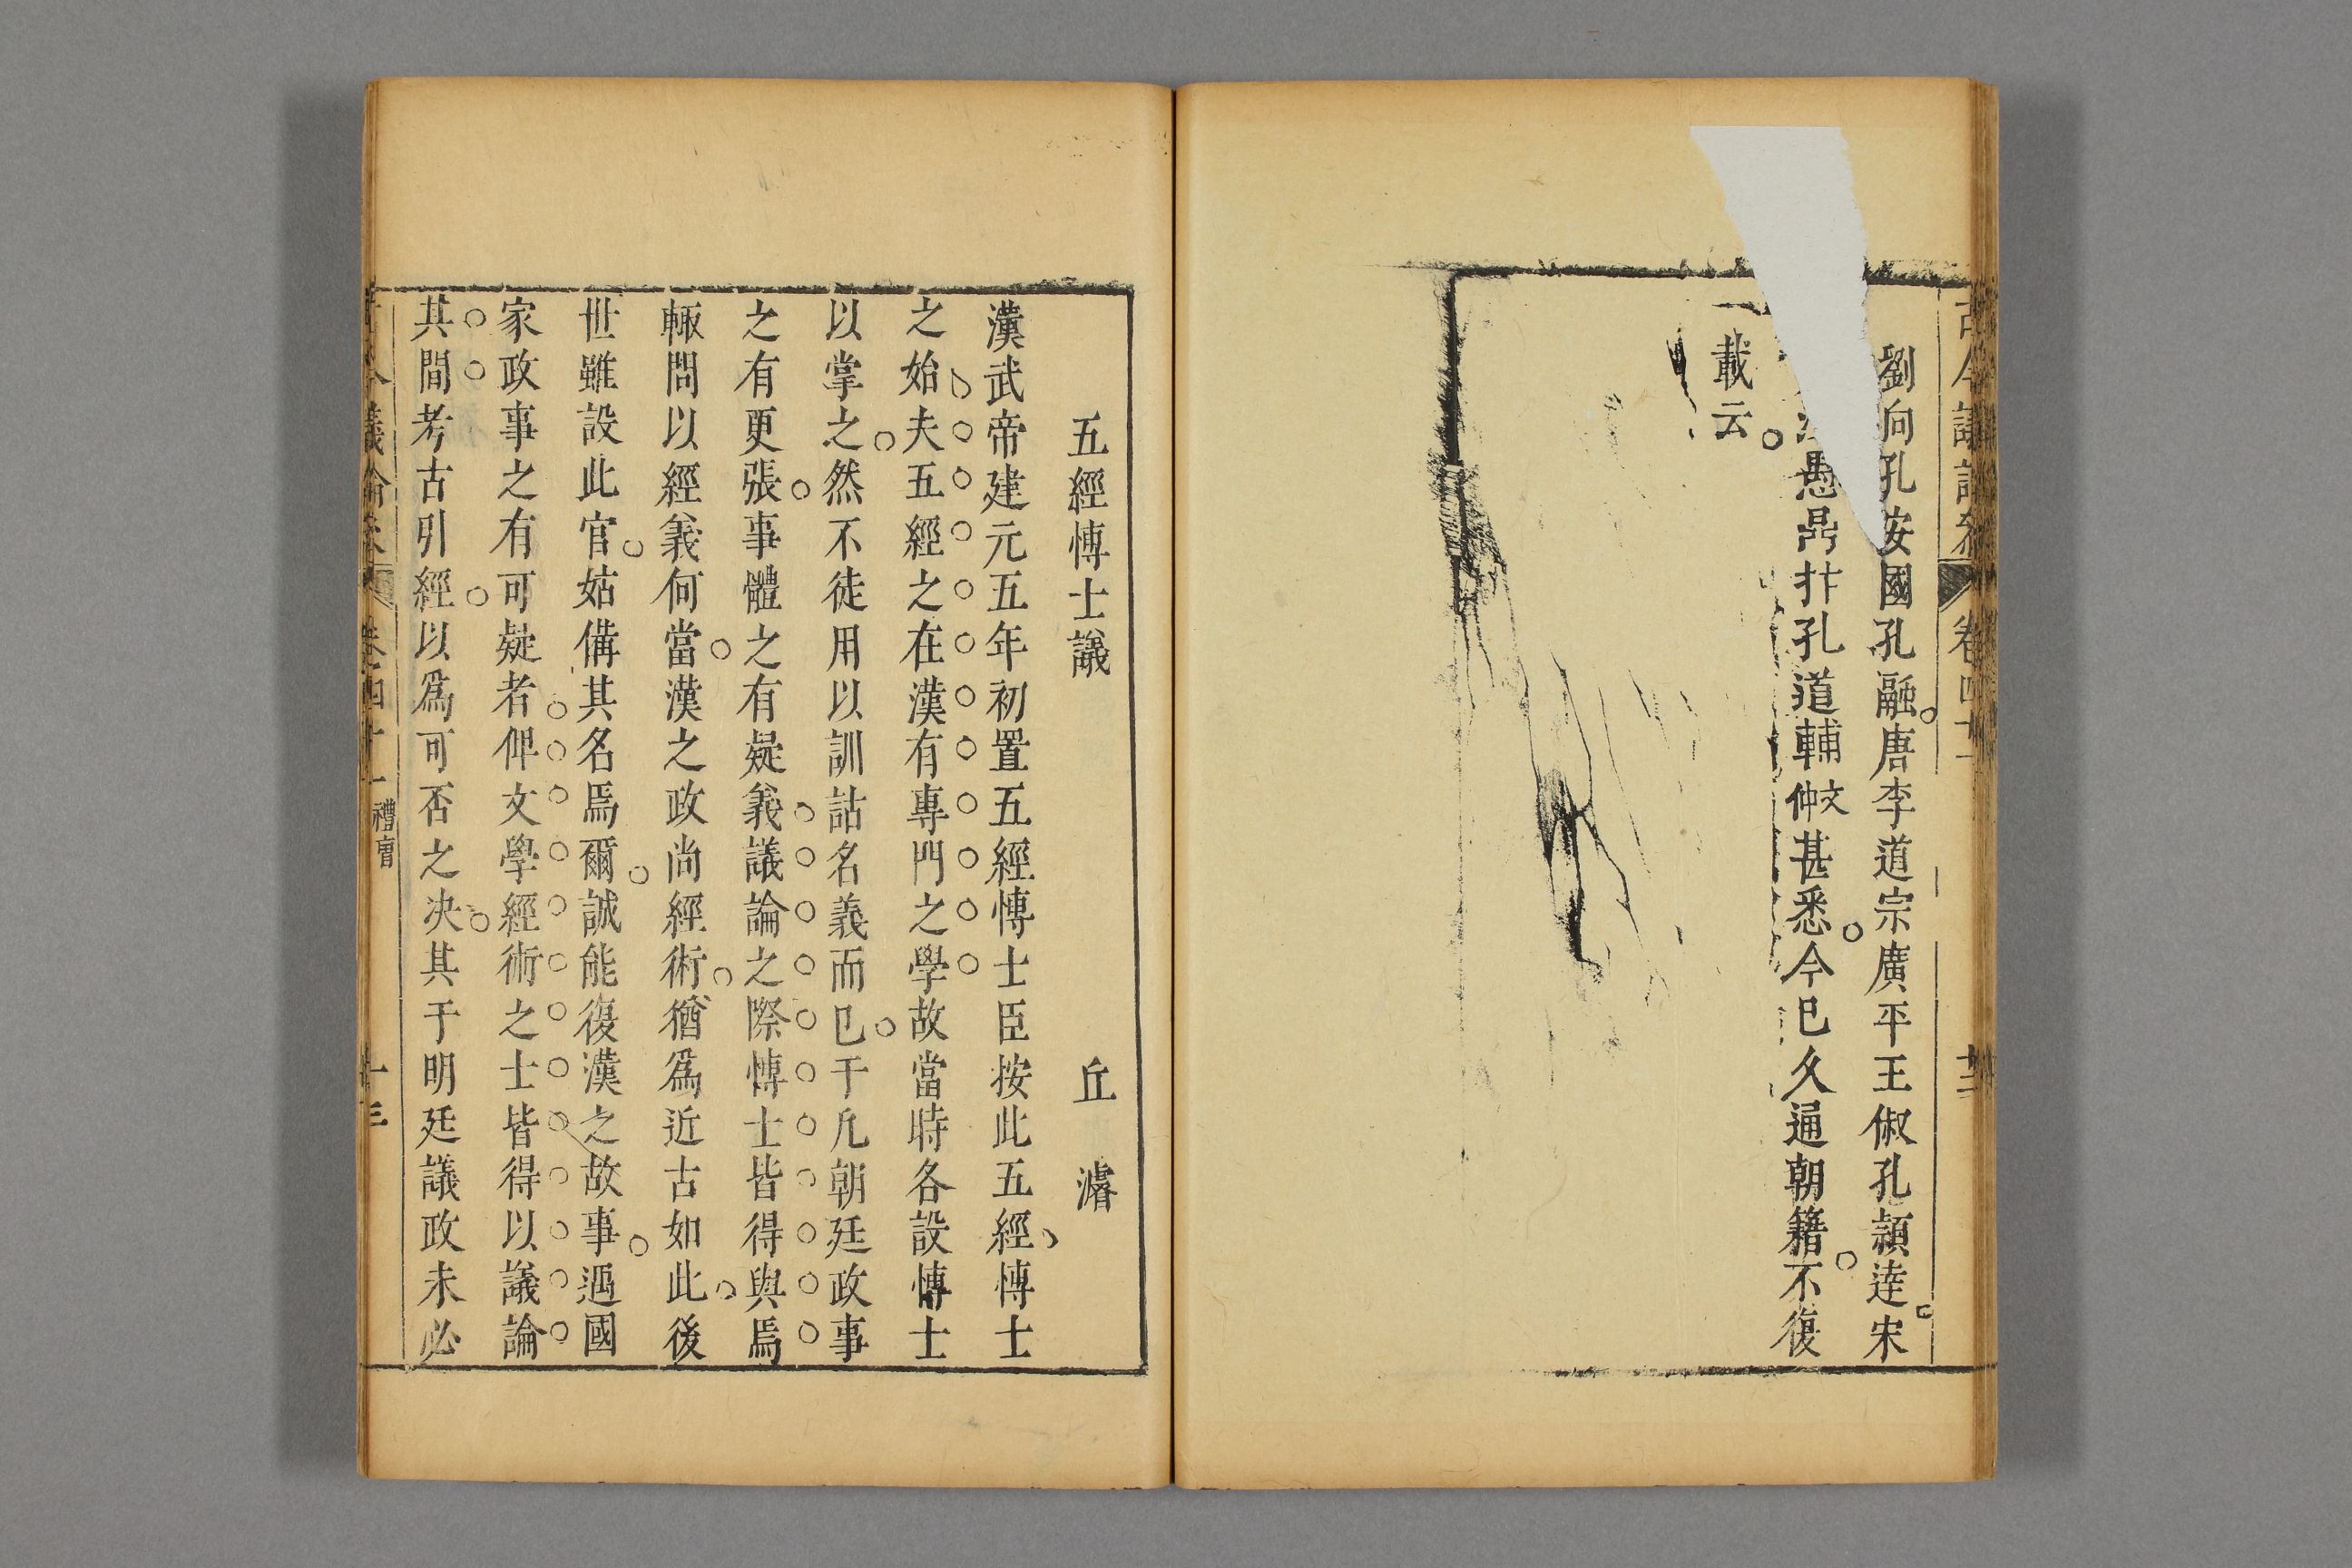 劉向孔安國孔融唐李道宗廣平王俶孔穎達宋
愚鼎抃孔道輔仲文甚悉今已久通朝籍不復
載云
卷四十一
五經博士議 丘濬
漢武帝建元五年初置五經博士臣按此五經博士
之始夫五經之在漢有專門之學故當時各設博士
以掌之然不徒用以訓詁名義而已于凡朝廷政事
之有更張事體之有疑義議論之際博士皆得與焉
輙問以經義何當漢之政尚經術猶爲近古如此後
世雖設此官姑備其名焉爾誠能復漢之故事遇國
家政事之有可疑者俾文學經術之士皆得以議論
其間考古引經以爲可否之决其于明廷議政未必
卷四十一 禮曹 十三